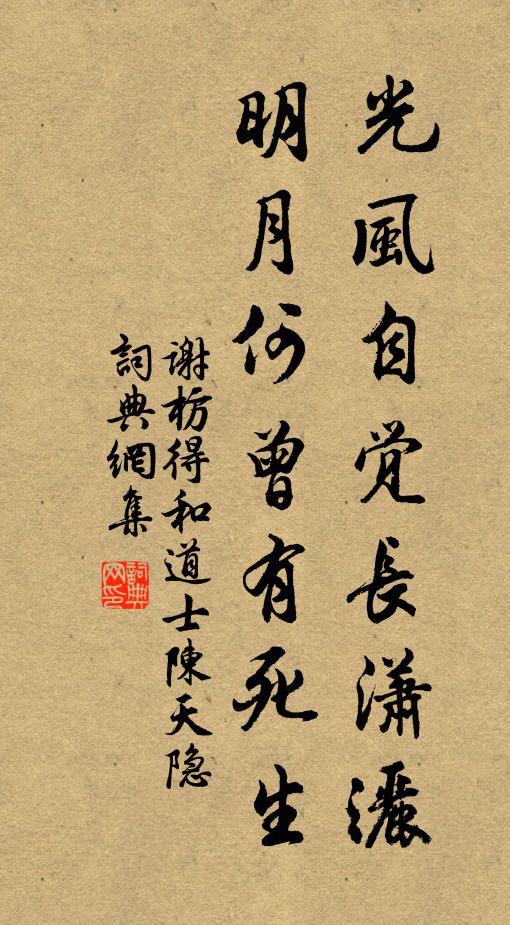 光風自覺長瀟灑
明月何曾有死生
謝枋得和道士陳天隐
詞典網集
詞典网印